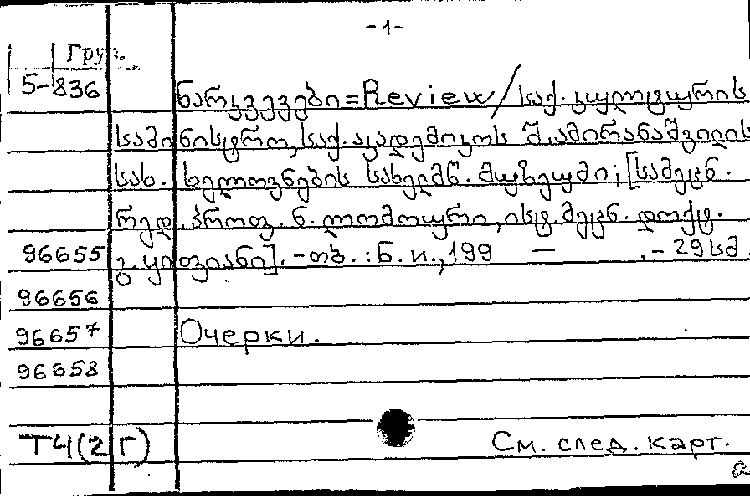 -1-
Груз.
5-836
ნარკვევები=Review/საქ. კულტურის
სამინისტრო, საქ. აკადემიკოს შ. ამირანაშვილის
სახ. ხელოვნების სახელმწ. მუზეუმი; [სამეცნ.
რედ. პროფ. ნ. ლომოური, ისტ. მეცნ. დოქტ.
96655 გ. ყიფიანი]. -თბ. : ნ. ი., 199 — . - 29 სმ
96656
96657 Очерки.
96658
Т4(2Г) См. след. карт.